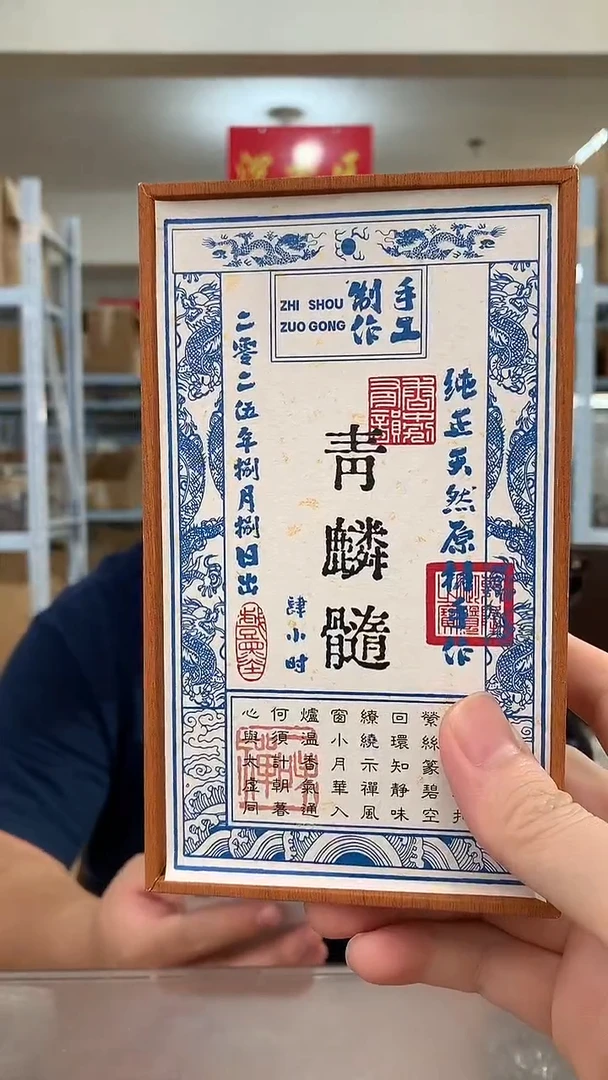 手工
制作
ZHI SHOU
ZUO GONG
纯正天然原材手作
青麟髓
肆小时
二零二伍年捌月捌日出
縈絲篆碧空
回環知靜味
繚繞示禪風
窗小月華入
爐溫香氣通
何須計朝暮
心與太虛同